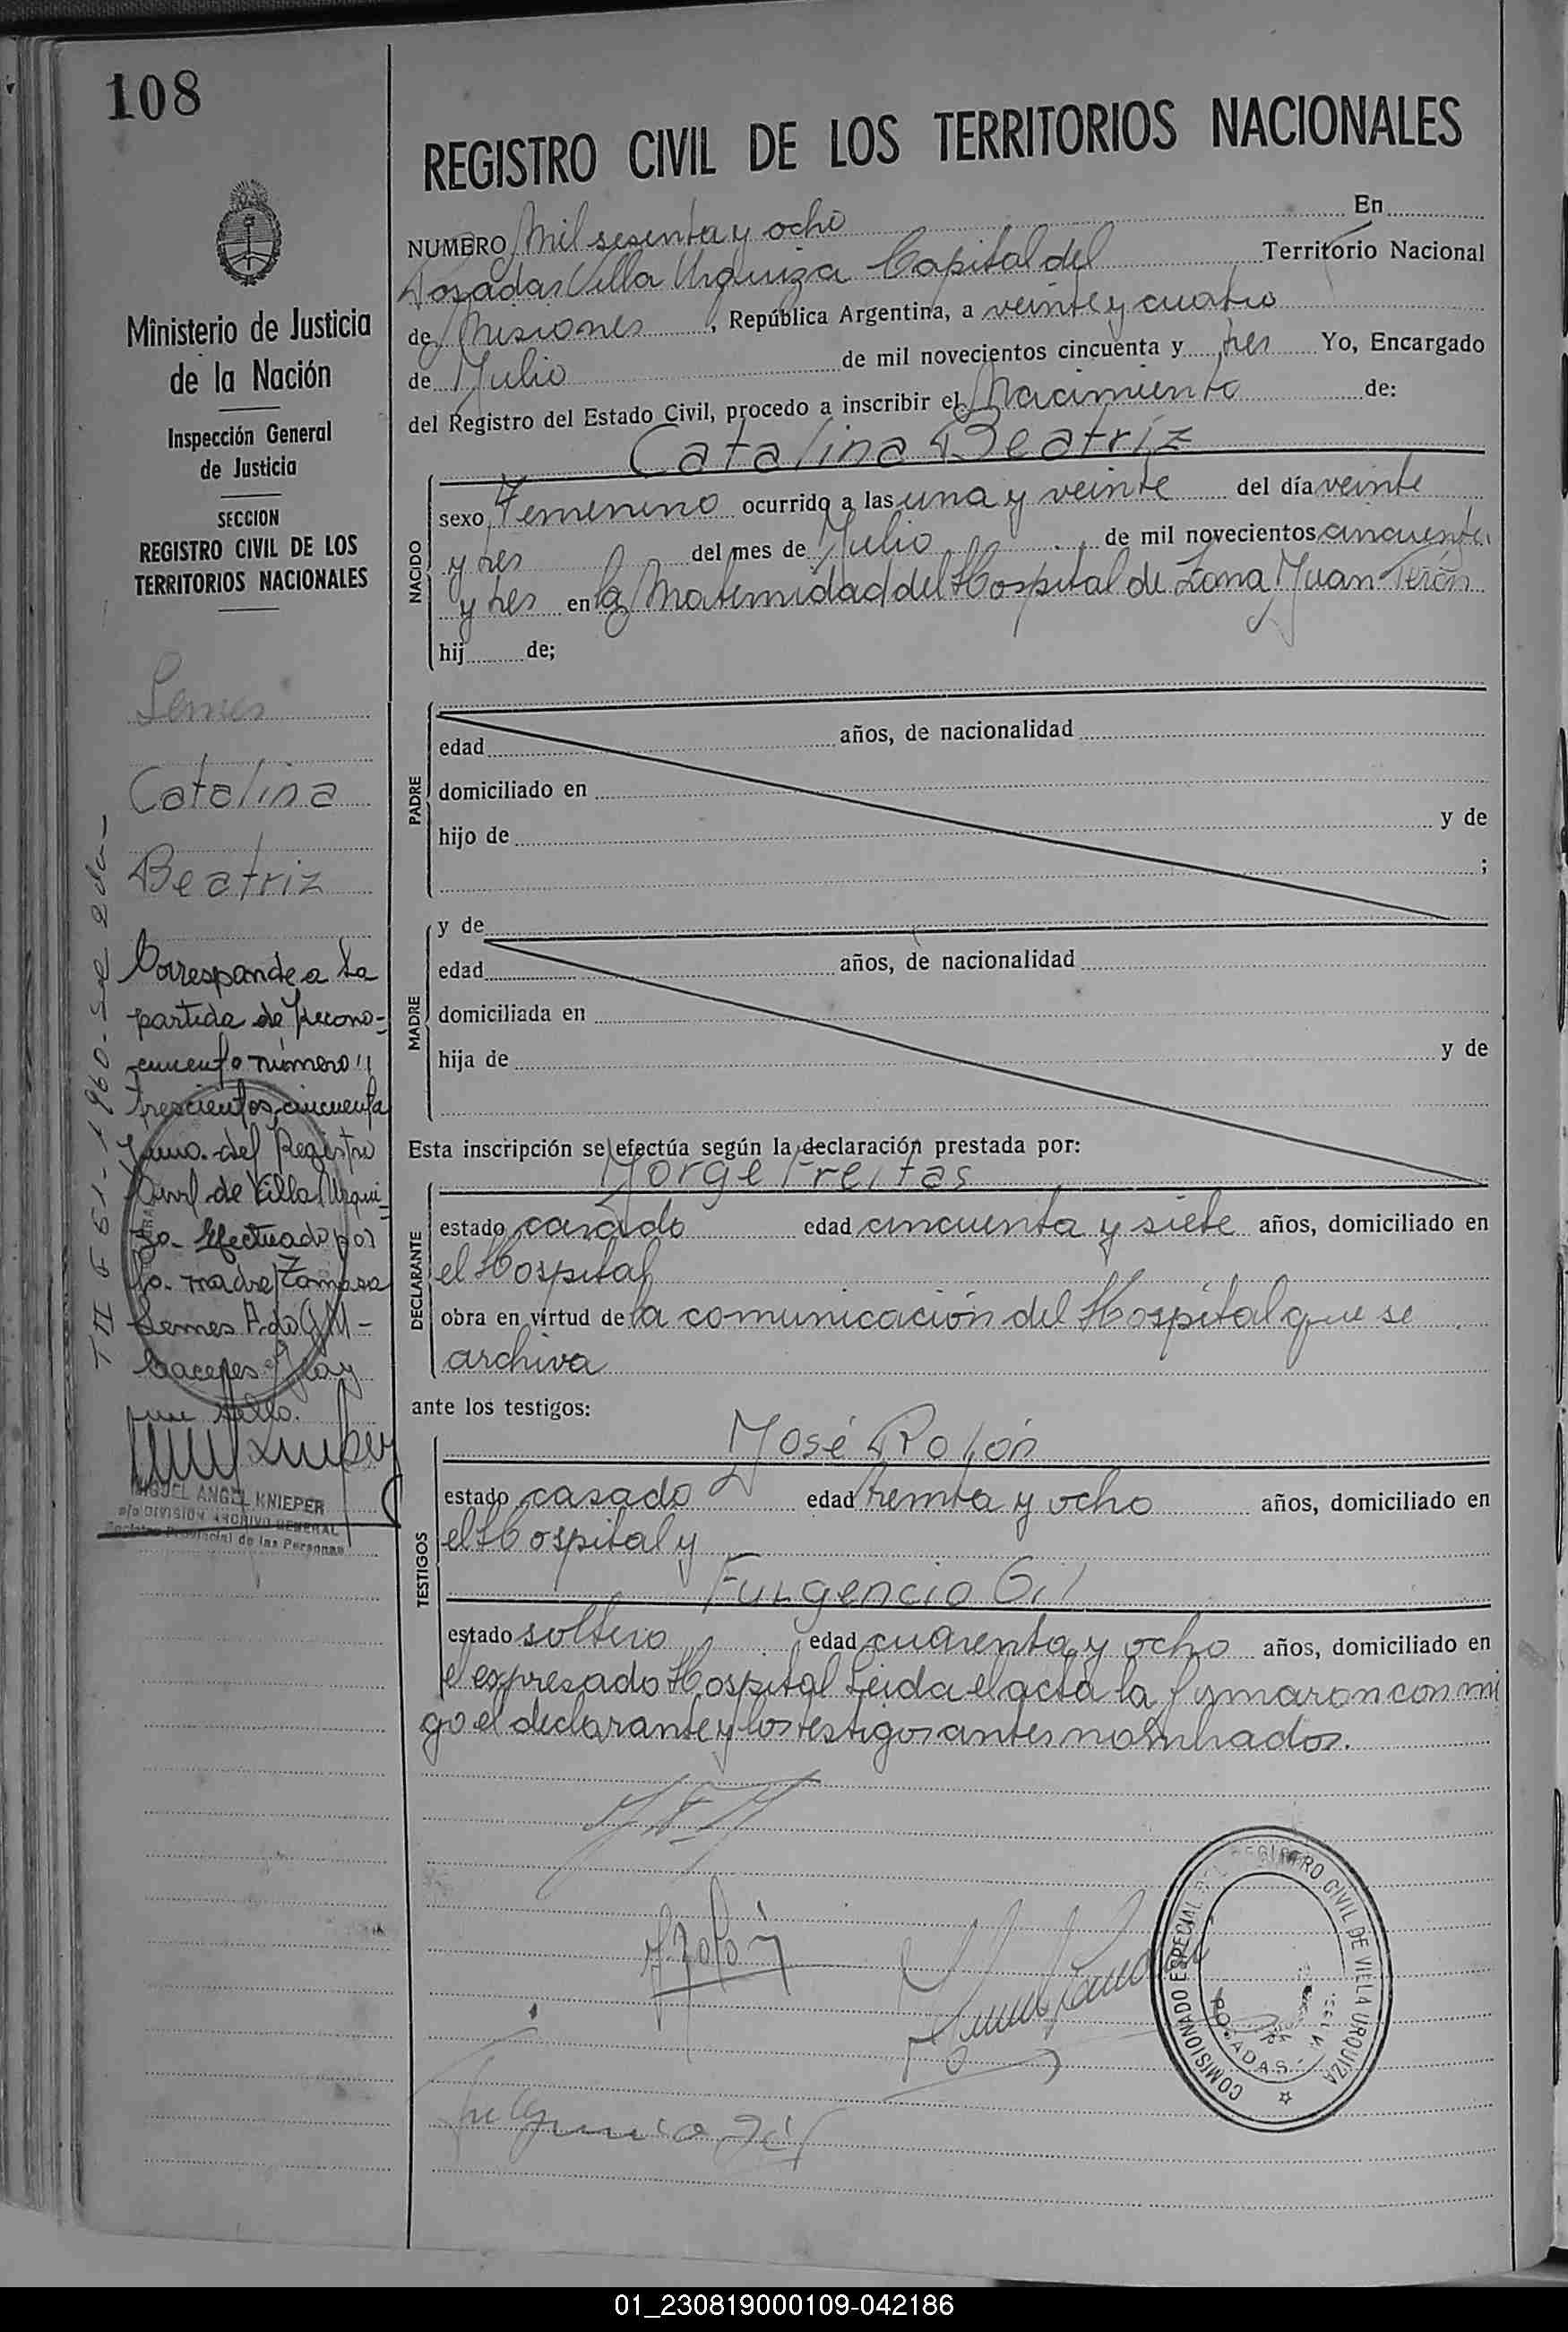 108
REGISTRO CIVIL DE LOS TERRITORIOS NACIONALES
NUMERO Mil sesenta y ocho En
Posadas Villa Urquiza Capital del Territorio Nacional
de Misiones, República Argentina, a veinte y cuatro
de Julio de mil novecientos cincuenta y tres Yo, Encargado
del Registro del Estado Civil, procedo a inscribir el Nacimiento de:
Catalina Beatríz
NACIDO
sexo Femenino ocurrido a las una y veinte del día veinte
y tres del mes de Julio de mil novecientos cincuenta
y tres en la Maternidad del Hospital de Zona Juan Perón
hij de;
PADRE
edad años, de nacionalidad
domiciliado en
hijo de y de
;
MADRE
y de
edad años, de nacionalidad
domiciliada en
hija de y de
Esta inscripción se efectúa según la declaración prestada por:
Jorge Freitas
DECLARANTE
estado casado edad cincuenta y siete años, domiciliado en
el Hospital
obra en virtud de la comunicación del Hospital que se
archiva
ante los testigos:
José Rolón
TESTIGOS
estado casado edad treinta y ocho años, domiciliado en
el Hospital y
Fulgencio Gil
estado soltero edad cuarenta y ocho años, domiciliado en
el expresado Hospital Leida el acta la firmaron con mi
go el declarante y los testigos antes nombrados.
J. Rolón
Fulgencio Gil
COMISIONADO ESPECIAL DEL REGISTRO CIVIL DE VILLA URQUIZA
POSADAS
Ministerio de Justicia
de la Nación
Inspección General
de Justicia
SECCION
REGISTRO CIVIL DE LOS
TERRITORIOS NACIONALES
Lemes
Catalina
Beatriz
Corresponde a la
partida de recono-
cimiento número
trescientos cincuenta
y uno del Registro
Civil de Villa Urqui-
za. Efectuado por
la madre Tomasa
Lemes
Hay
un sello.
MIGUEL ANGEL KNIEPER
DIVISION ARCHIVO GENERAL
Registro Provincial de las Personas
01_230819000109-042186